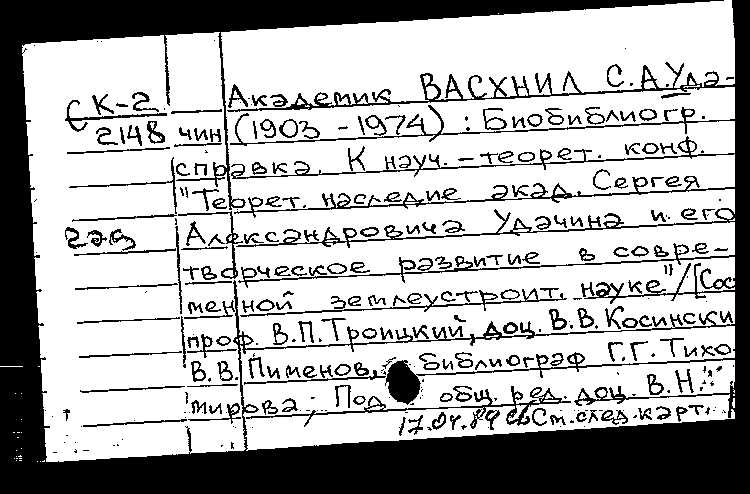 СК-2 Академик ВАСХНИЛ С.А.Уда-
2148 чин (1903-1974) : Биобиблиогр.
справка. К науч.-теорет. конф.
"Теорет. наследие акад. Сергея
Александровича Удачина и его
творческое развитие в совре-
менной землеустроит. науке"/[Сос
проф. В.П.Троицкий, доц. В.В.Косински
В.В.Пименов, библиограф Г.Г.Тихо
мирова; Под общ. ред. доц. В.Н.
17.04.89 См.след.карт.